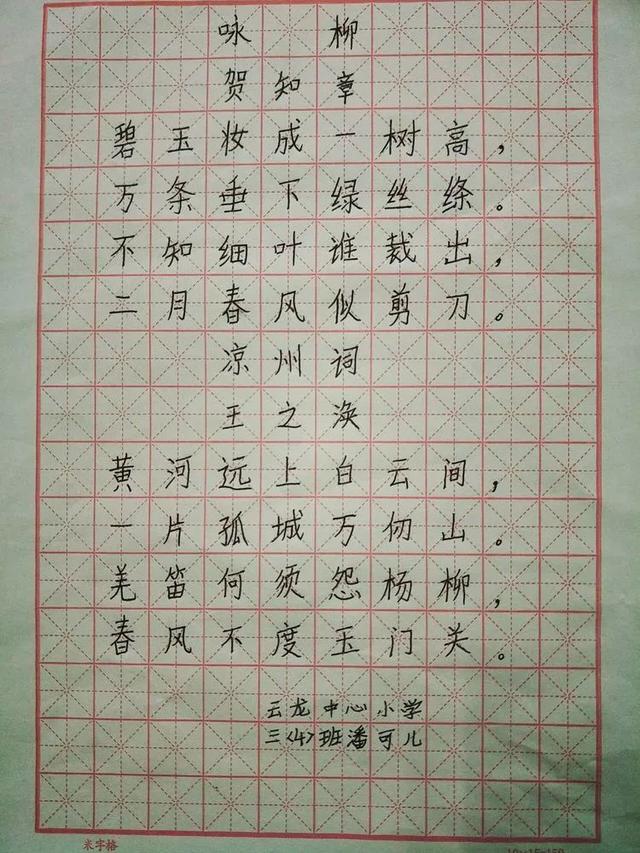 咏柳
贺知章
碧玉妆成一树高，
万条垂下绿丝绦。
不知细叶谁裁出，
二月春风似剪刀。
凉州词
王之涣
黄河远上白云间，
一片孤城万仞山。
羌笛何须怨杨柳，
春风不度玉门关。
云龙中心小学
三〈4〉班潘可儿
米字格